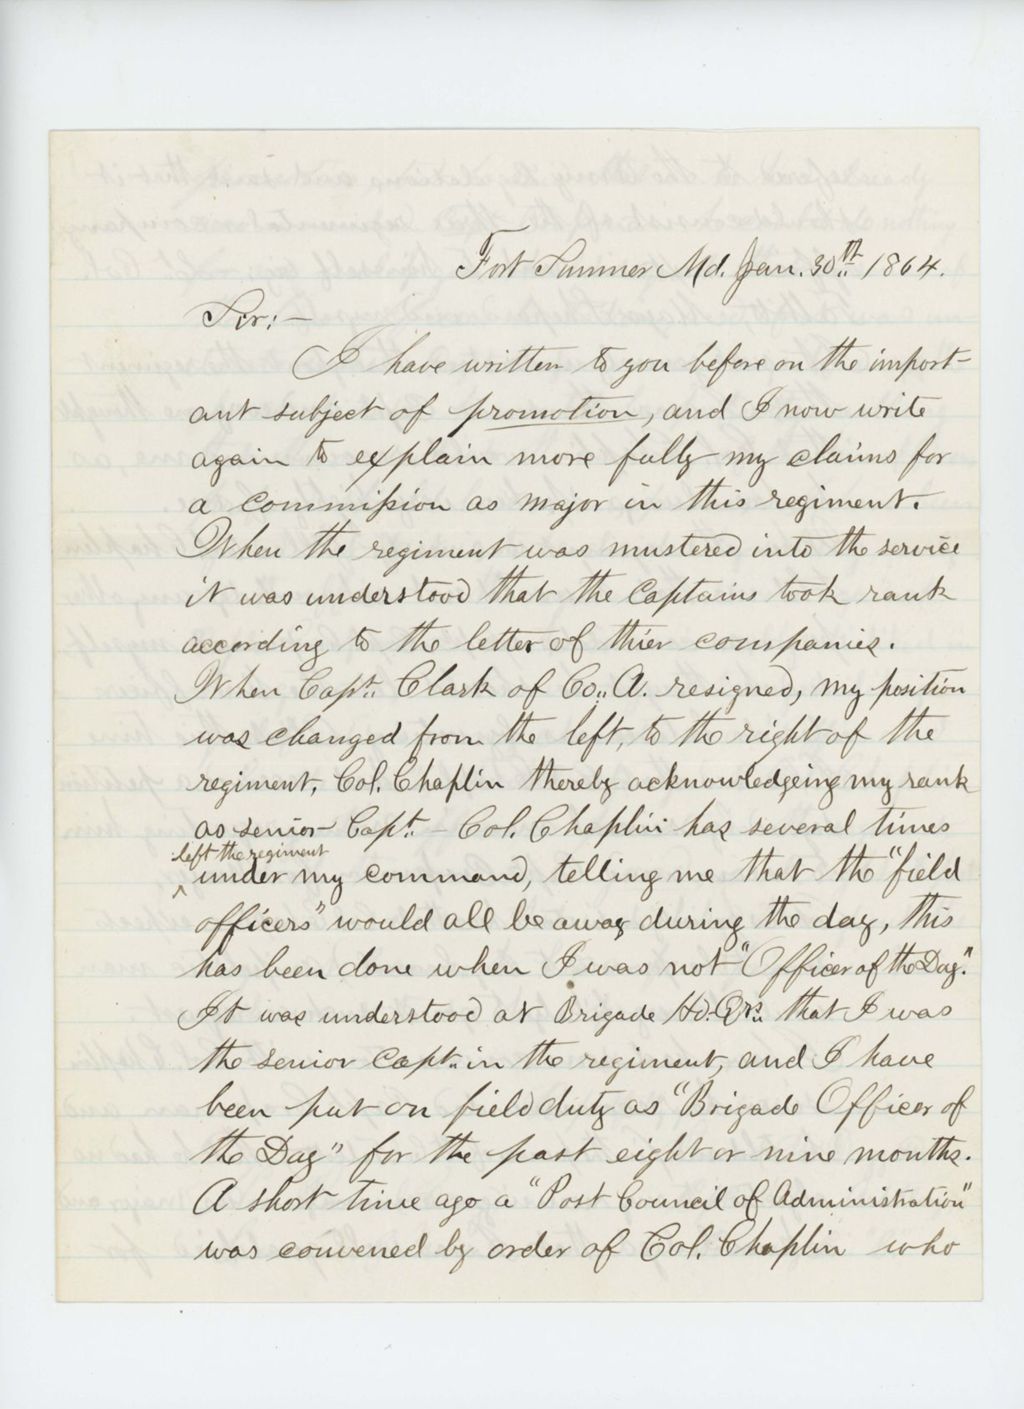 Fort Sumner Md. Jan. 30th 1864.
Sir:—
I have written to you before on the import-
ant subject of promotion, and I now write
again to explain more fully my claims for
a commission as major in this regiment.
When the regiment was mustered into the service
it was understood that the Captains took rank
according to the letter of thier companies.
When Capt. Clark of Co. A. resigned, my position
was changed from the left, to the right of the
regiment, Col. Chaplin thereby acknowledgeing my rank
as senior Capt. – Col. Chaplin has several times
left the regiment
^ under my command, telling me that the "field
officers" would all be away during the day, this
has been done when I was not "Officer of the Day."
It was understood at Brigade Hd. Qrs. that I was
the senior Capt. in the regiment, and I have
been put on field duty as "Brigade Officer of
the Day" for the past eight or nine months.
A short time ago a "Post Council of Administration"
was convened by order of Col. Chaplin who